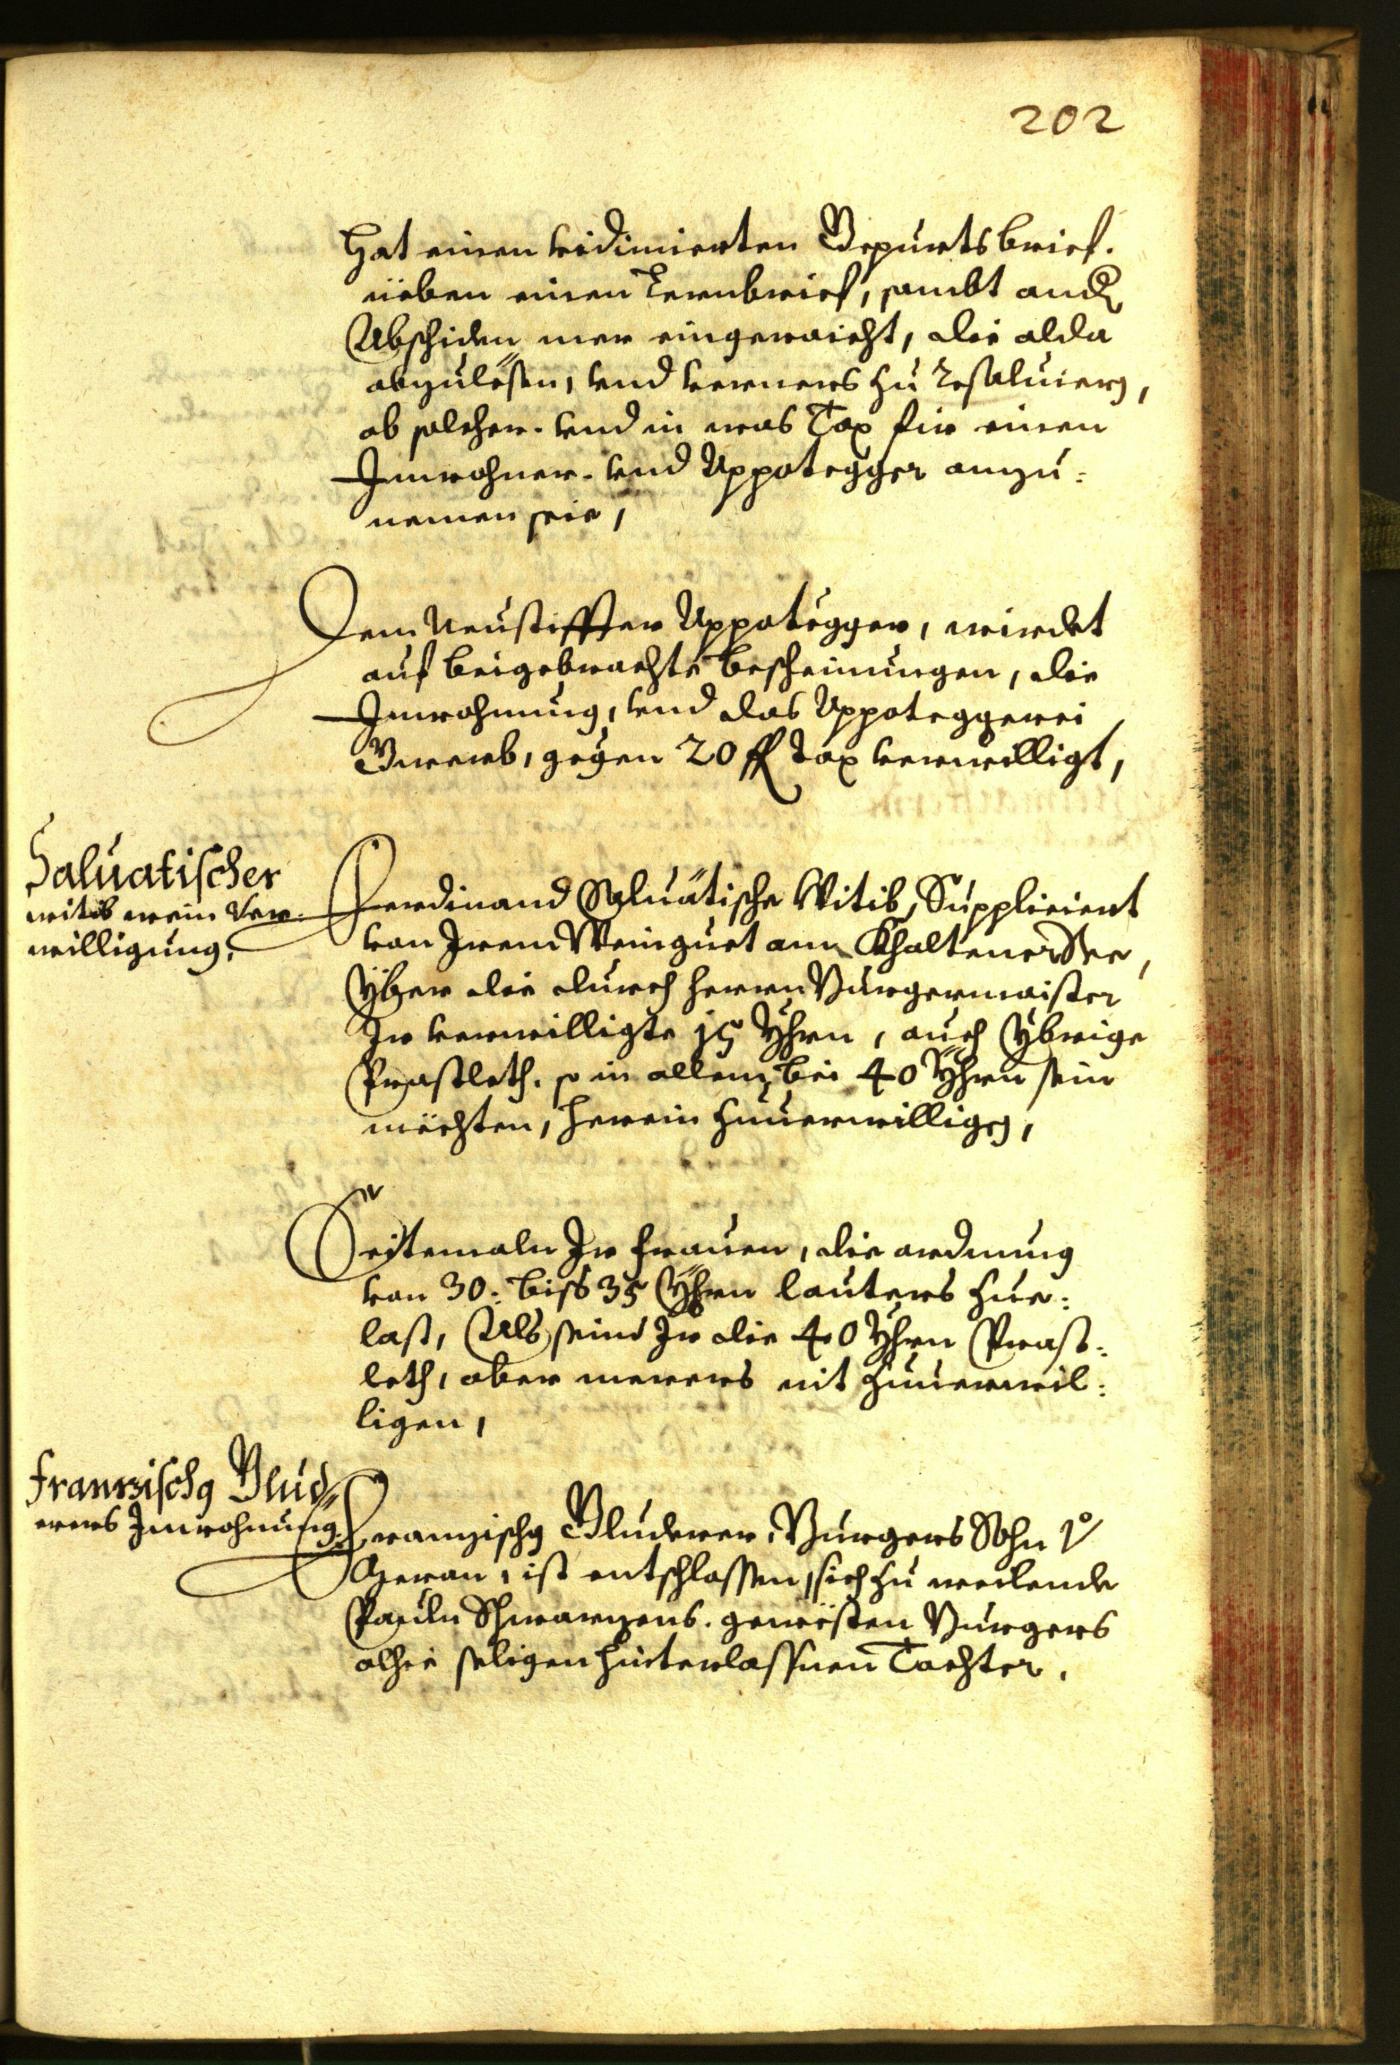 202
Hat einen vidimierten Gepurtsbrief.
neben einen Lernbrief, sambt and(er)
Abschiden mer eingeraicht, die alda
abzulösen, vnd verners zu resoluiern,
ob solcher. vnd in was Tax für einen
Inwohner. vnd Appotegger anzu=
nemen seie,
Dem Neustiffter Appotegger, wirdet
auf beigebrachte bescheinungen, die
Inwohnung, vnd das Appoteggerei
Gwerb, gegen 20 fl Tax verwilligt,
Saluatischer
witib wein Ver=
willigung.
Ferdinand Saluatische Witib, Supplicient
von Irem Weinguet am Khalterer See,
Über die durch herrn Burgermaister
Ir verwilligte 15 Yhrn, auch Übrige
Prastleth. so in allem bei 40 Yhrn sein
möchten, herein zuuerwilligen,
Seitemaln Ir frauen, die ordnung
von 30: biss 35 Yhrn lauters zue=
last, Als seind Ir die 40 Yhrn Prast=
leth, aber merers nit zuuerwil=
ligen,
Franzischg Plud=
erers Inwohnung.
Franzischg Pluderer, Burgers Sohn v(on)
Meran, ist entschlossen, sich zu weilende
Pauln Schwarzens. gewesten Burgers
alhie seligen hinterlassnen Tochter.